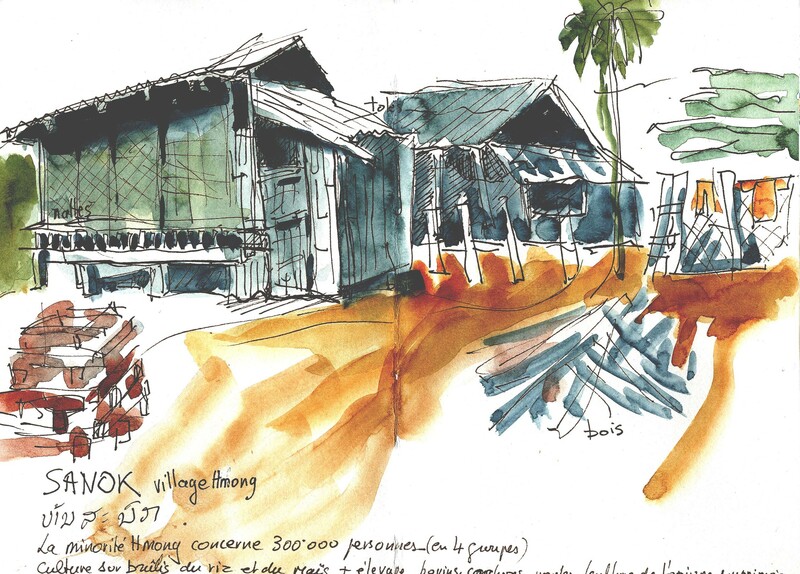 tole
nattes
bois
SANOK village Hmong
ບ້ານ ສະ ນົກ
La minorité Hmong concerne 300'000 personnes (en 4 groupes)
Culture sur brûlis du riz et du maïs + élevage bovins, cochons